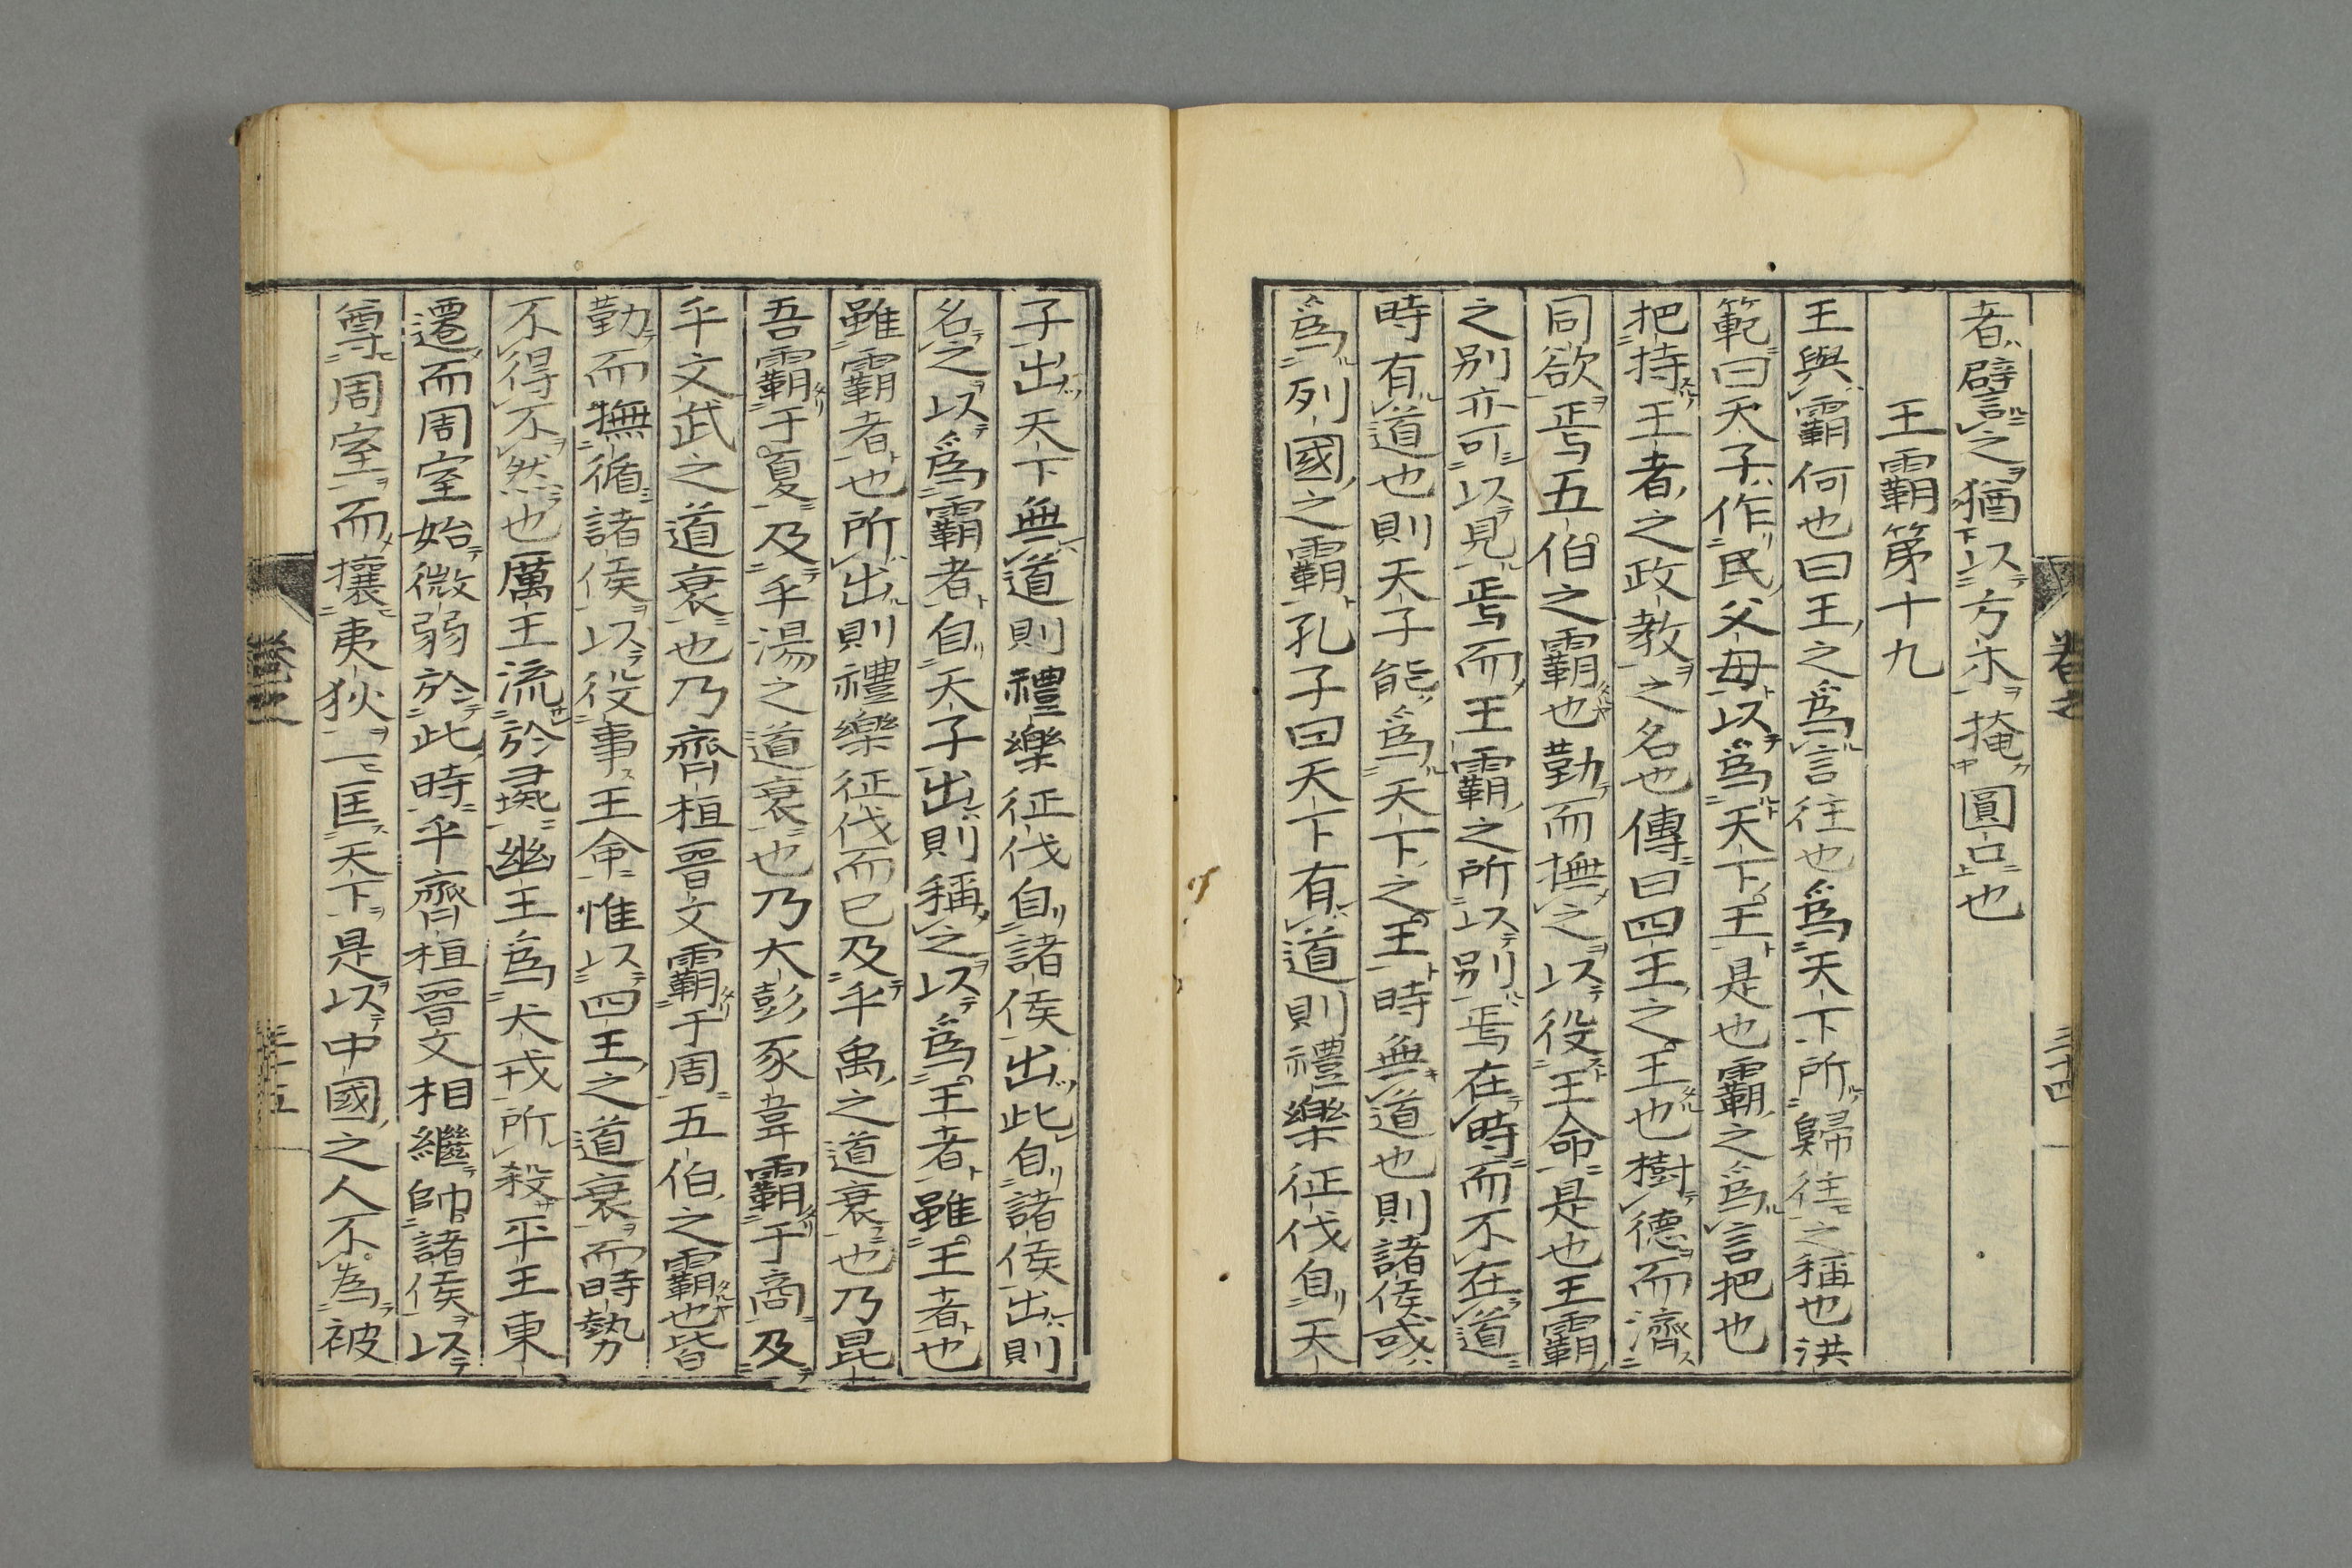 者譬言之猶以方木掩圓口也
王霸第十九
王與霸何也曰王之爲言往也爲天下所歸往之稱也洪
範曰天子作民父母以爲天下王是也霸之爲言把也
把持王者之政教之名也傳曰四王之王也樹德而濟
同欲焉五伯之霸也勤而撫之以役王命是也王霸
之別亦可以見焉而王霸之所以別焉在時而不在道
時有道也則天子能爲天下之王時無道也則諸侯或
爲列國之霸孔子曰天下有道則禮樂征伐自天
子出天下無道則禮樂征伐自諸侯出此自諸侯出則
名之以爲霸者自天子出則稱之以爲王者雖王者也
雖霸者也所出則禮樂征伐而已及乎禹之道衰也乃昆
吾霸于夏及乎湯之道衰也乃大彭豕韋霸于商及
乎文武之道衰也乃齊桓晉文霸于周五伯之霸也皆
勤而撫循諸侯以役事王命惟以四王之道衰而時勢
不得不然也厲王流於彘幽王爲犬戎所殺平王東
遷而周室始微弱於此時乎齊桓晉文相繼帥諸侯以
尊周室而攘夷狄一匡天下是以中國之人不為被
三十四